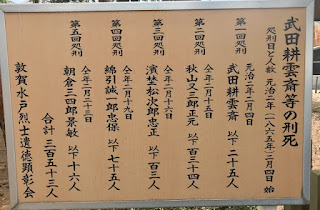 武田耕雲斎等の刑死
処刑日と人数 元治二年一八六五年二月四日 始
第一回処刑 元治二年二月四日
武田耕雲斎 以下二十五人
第二回処刑 仝年二月十五日
秋山又三郎正光 以下百三十四人
第三回処刑 仝年二月十六日
濱埜松次郎忠正 以下百三人
第四回処刑 仝年二月十九日
綿引誠一郎忠保 以下七十五人
第五回処刑 仝年二月二十三日
朝倉三四郎景敏 以下十六人
合計 三百五十三人
敦賀水戸烈士遺徳顕彰会